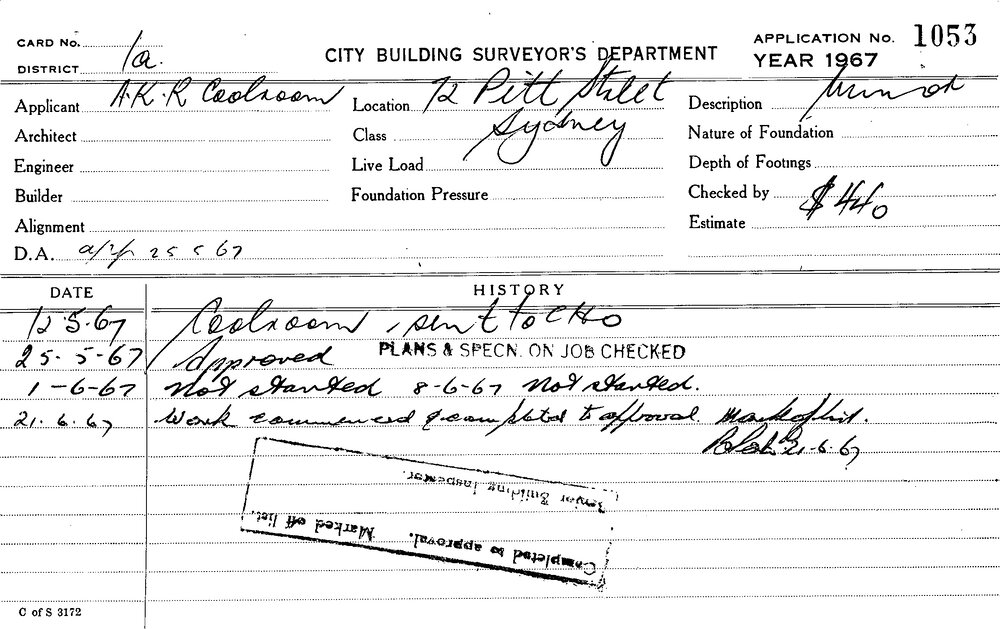 CARD No.
DISTRICT 1a.
CITY BUILDING SURVEYOR'S DEPARTMENT
APPLICATION No. 1053
YEAR 1967
Applicant A.K.R Coolroom
Location 72 Pitt Street
Sydney
Description
Architect
Class
Nature of Foundation
Engineer
Live Load
Depth of Footings
Builder
Foundation Pressure
Checked by
Alignment
Estimate $440
D.A. 25 5 67
DATE HISTORY
12.5.67 Coolroom, sent to CHO
25. 5-67 Approved PLANS & SPECN. ON JOB CHECKED
1-6-67 Not started 8-6-67 Not started.
21. 6. 67 Work commenced & completed to approval. Mark off list.
21-6-67
Completed to approval. Marked off list.
Senior Building Inspector.
C of S 3172